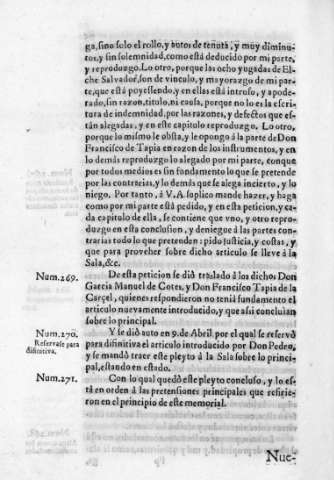 ga, sino solo el rollo, y autos de tenuta, y muy diminu-
tos, y sin solemnidad, como está deducido por mi parte,
y reproduzgo. Lo otro, porque las ocho yugadas de El-
che Salvador, son de vinculo, y mayorazgo de mi par-
te, que está posseyendo, y en ellas está intruso, y apode-
rado, sin razon, titulo, ni causa, porque no lo es la escri-
tura de indemnidad, por las razones, y defectos que es-
tàn alegadas, y en este capitulo reproduzgo. Lo otro,
porque lo mismo le obsta, y lo opongo á la parte de Don
Francisco de Tapia en razon de los instrumentos, y en
lo demàs reproduzgo lo alegado por mi parte, conque
por todos medios es sin fundamento lo que se pretende
por las contrarias, y lo demàs que se alega incierto, y lo
niego. Por tanto, á V. A. suplico mande hazer, y haga
como por mi parte está pedido, y en esta peticion, y ca-
da capitulo de ella, se contiene que vno, y otro repro-
duzgo en esta conclusion, y deniegue á las partes con-
trarias todo lo que pretenden: pido justicia, y costas, y
que para proveher sobre dicho articulo se lleve á la
Sala, &c.
Num. 269. De esta peticion se diò traslado á los dichos Don
Garcia Manuel de Cotes, y Don Francisco Tapia de la
Carçel, quienes respondieron no tenia fundamento el
articulo nuevamente introducido, y que assi concluìan
sobre lo principal.
Num. 270. Y se diò auto en 9. de Abril, por el qual se reservò
Reservase para difinitiva. para difinitiva el articulo introducido por Don Pedro,
y se mandò traer este pleyto á la Sala sobre lo princi-
pal, estando en estado.
Num. 271. Con lo qual quedò este pleyto concluso, y lo es-
tá en orden à las pretensiones principales que refirie-
ron en el principio de este memorial.
Nue-